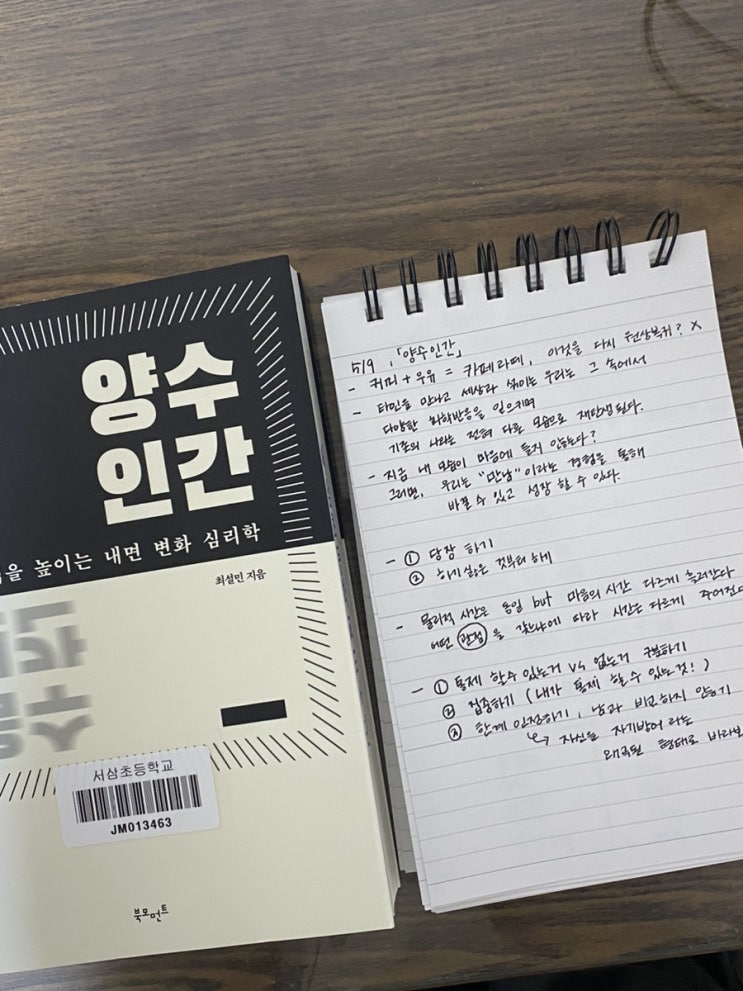 양수
인간
을 높이는 내면 변화 심리학
최설민 지음
서삼초등학교
JM013463
북모먼트
5/9, 「양수인간」
- 커피 + 우유 = 카페라떼, 이것을 다시 원상복귀? X
- 타인을 만나고 세상과 섞이는 우리는 그 속에서
다양한 화학반응을 일으키며
기존의 나와는 전혀 다른 모습으로 재탄생 된다.
- 지금 내 모습이 마음에 들지 않는다?
그러면, 우리는 "만남"이라는 경험을 통해
바뀔 수 있고 성장 할 수 있다.
- ① 당장 하기
② 하기 싫은 것부터 하기
- 물리적 시간은 동일 but 마음의 시간 다르게 흘러간다
어떤 관점을 갖느냐에 따라 시간은 다르게 주어진다
- ① 통제 할 수 있는거 vs 없는거 구분하기
② 집중하기 (내가 통제 할 수 있는 것!)
③ 한계 인정하기, 남과 비교하지 않기
↳ 자신을 자기방어 라는
왜곡된 형태로 바라보